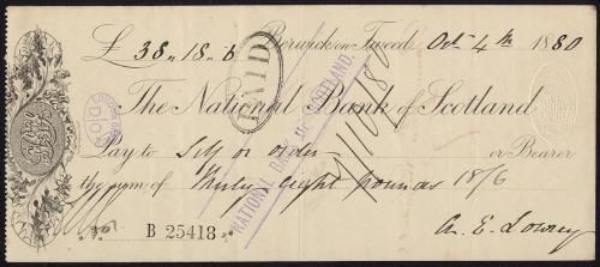 £ 38 „ 18 „ 6 Berwick on Tweed Oct 4th 1880
PAID
The National Bank of Scotland
NATIONAL BANK OF SCOTLAND.
4/10/80
Pay to Self or order or Bearer
the sum of Thirty eight pounds 18/6
B 25413 A. E. Lowrey